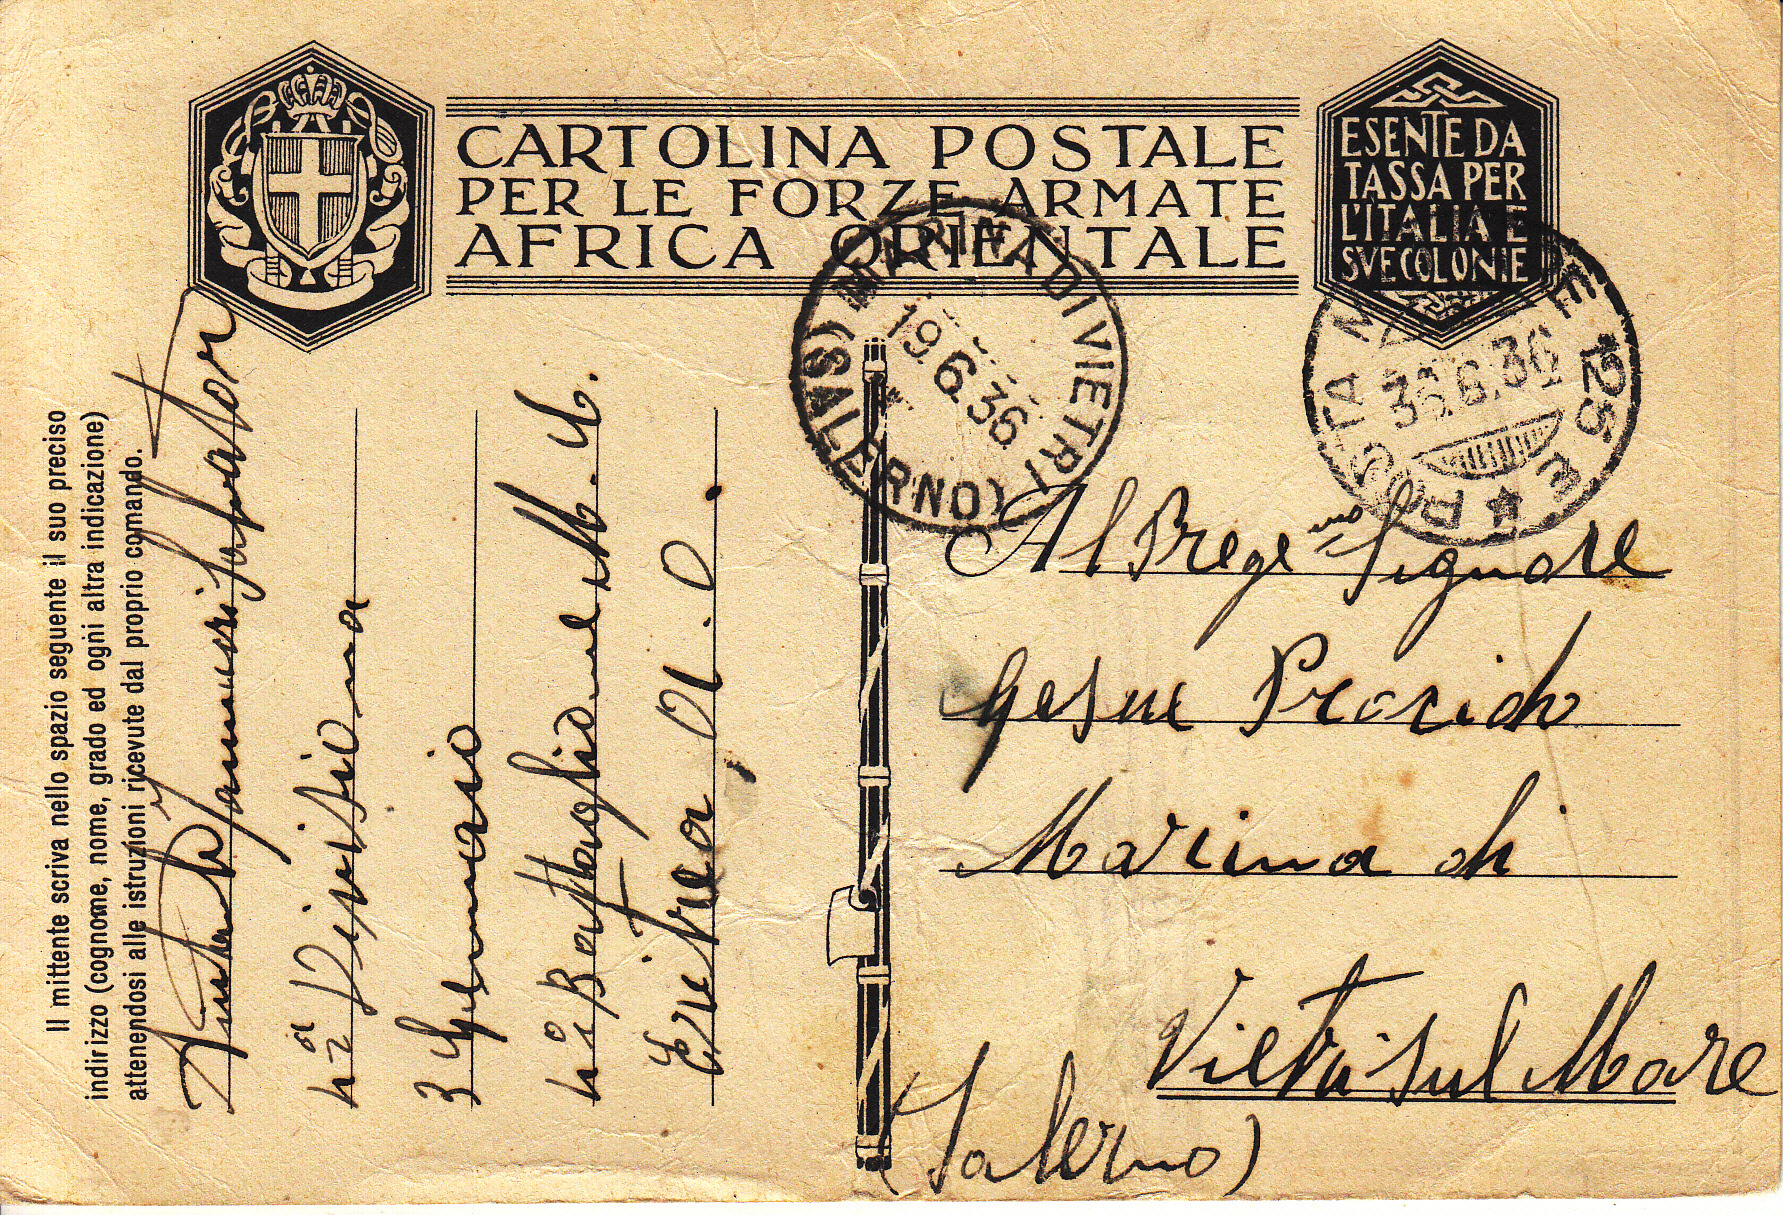 CARTOLINA POSTALE
PER LE FORZE ARMATE
AFRICA ORIENTALE
ESENTE DA
TASSA PER
L'ITALIA E
SUE COLONIE
MARINA DI VIETRI (SALERNO)
19.6.36
POSTA MILITARE 125 E
30.6.36
Il mittente scriva nello spazio seguente il suo preciso
indirizzo (cognome, nome, grado ed ogni altra indicazione)
attenendosi alle istruzioni ricevute dal proprio comando.
Salvatore
4ª Divisione
3 Gennaio
4º Battaglione M.
Eritrea A.O.
Al Preg.mo Signore
Gesue Procido
Marina di
Vietri sul Mare
(Salerno)